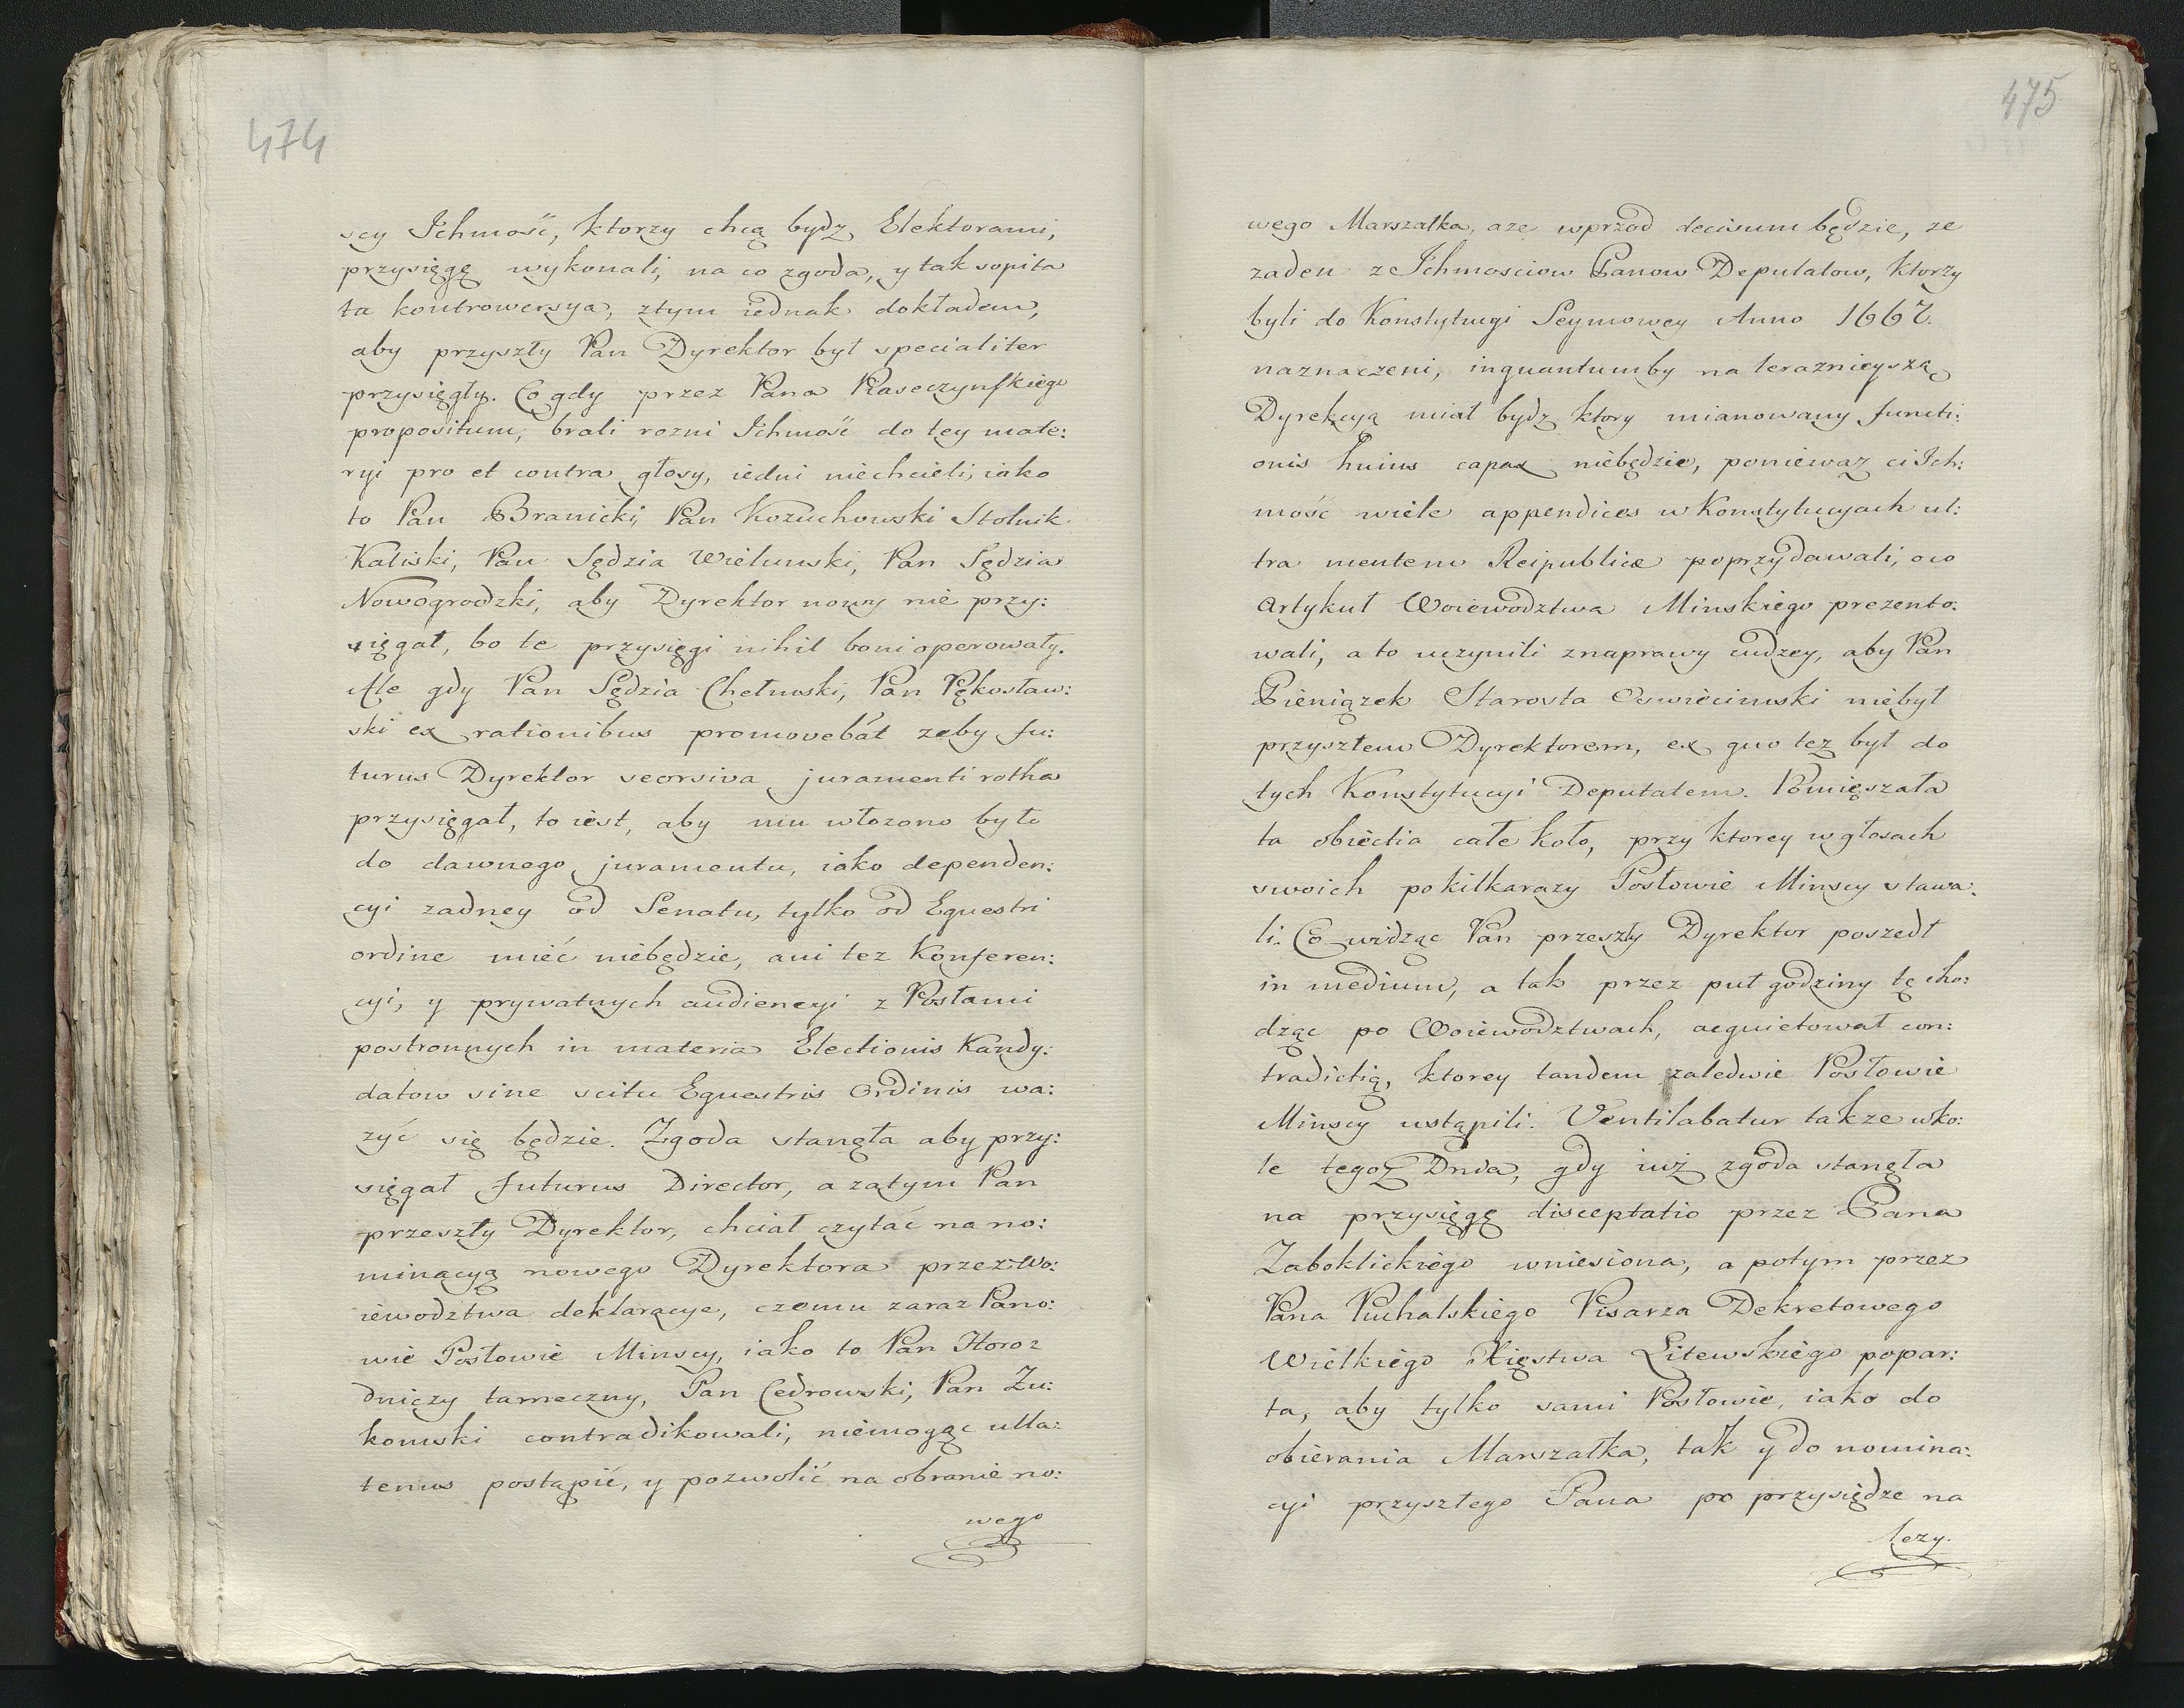 474
scy Ichmość, ktorzy chcą bydz Elektorami,
przysięgę wykonali, na co zgoda, y tak sopita
ta kontrowersya, ztym iednak dokładem,
aby przyszły Pan Dyrektor był specialiter
przysięgły. Co gdy przez Pana Raseczynskiego
propositum, brali rozni Ichmość do tey mate:
ryi pro et contra głosy, iedni niechcieli, iako
to Pan Branicki, Pan Kozuchowski Stolnik
Kaliski, Pan Sędzia Wielunski, Pan Sędzia
Nowogrodzki, aby Dyrektor nowy nie przy:
sięgał, bo te przysięgi nihil boni operowały.
Ale gdy Pan Sędzia Chełmski, Pan Pękosław:
ski ex rationibus promovebát zeby fu:
turus Dyrektor seorsiva juramenti rotha
przysięgał, to iest, aby mu włozono było
do dawnego juramentu, iako dependen:
cyi zadney od Senatu, tylko od Equestri
ordine mieć niebędzie, ani tez Konferen:
cyi, y prywatnych audiencyi z Posłami
postronnych in materia Electionis Kandy:
datow sine scitu Equestris Ordinis wa:
zyć się będzie. Zgoda stanęła aby przy:
sięgał futurus Director, a zatym Pan
przeszły Dyrektor, chciał czytać na no:
minacyą nowego Dyrektora przez Wo:
iewodztwa deklaracye, czemu zaraz Pano:
wie Posłowie Minscy, iako to Pan Horo:
dniczy tameczny, Pan Cedrowski, Pan Zu:
kowski contradikowali, niemogąc ulla:
tenus postąpić, y pozwolić na obranie no:
wego
475
wego Marszałka, aze wprzod decisum będzie, ze
zaden z Ichmosciow Panow Deputatow, ktorzy
byli do Konstytucyi Seymowey Anno 1667.
naznaczeni, inquantumby na teraznieyszą
Dyrekcyą miał bydz ktory mianowany functi:
onis huius capax niebędzie, poniewaz ci Ich:
mość wiele appendices w Konstytucyach ul:
tra mentem Reipublicæ poprzydawali, o co
Artykuł Woiewodztwa Minskiego prezento:
wali, a to uczynili znaprawy cudzey, aby Pan
Pieniązek Starosta Oswiecimski niebył
przyszłem Dyrektorem, ex quo tez był do
tych Konstytucyi Deputatem. Pomięszała
ta obiectia całe koło, przy ktorey w głosach
swoich po kilkarazy Posłowie Minscy stawa:
li. Co widząc Pan przeszły Dyrektor poszedł
in medium, a tak przez puł godziny tę cho:
dząc po Woiewodztwach, acquietował con:
tradictią, ktorey tandem zaledwie Posłowie
Minscy ustąpili. Ventilabatur takze wko:
le tegoz Dnia, gdy iuż zgoda stanęła
na przysięgę disceptatio przez Pana
Zaboklickiego wniesiona, a potym przez
Pana Puchalskiego Pisarza Dekretowego
Wielkiego Xięstwa Litewskiego popar:
ta, aby tylko sami Posłowie, iako do
obierania Marszałka, tak y do nomina:
cyi przyszłego Pana po przysiędze na
lezy.